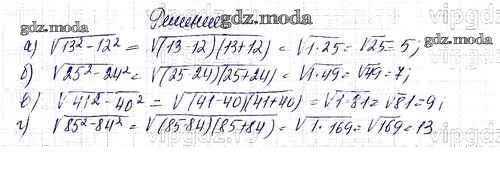 Решение
gdz.moda
gdz.moda
vipgdz
а) √13²-12² = √(13-12)(13+12) = √1·25 = √25 = 5;
gdz.moda
б) √25²-24² = √(25-24)(25+24) = √1·49 = √49 = 7;
в) √41²-40² = √(41-40)(41+40) = √1·81 = √81 = 9;
г) √85²-84² = √(85-84)(85+84) = √1·169 = √169 = 13
vipgdz